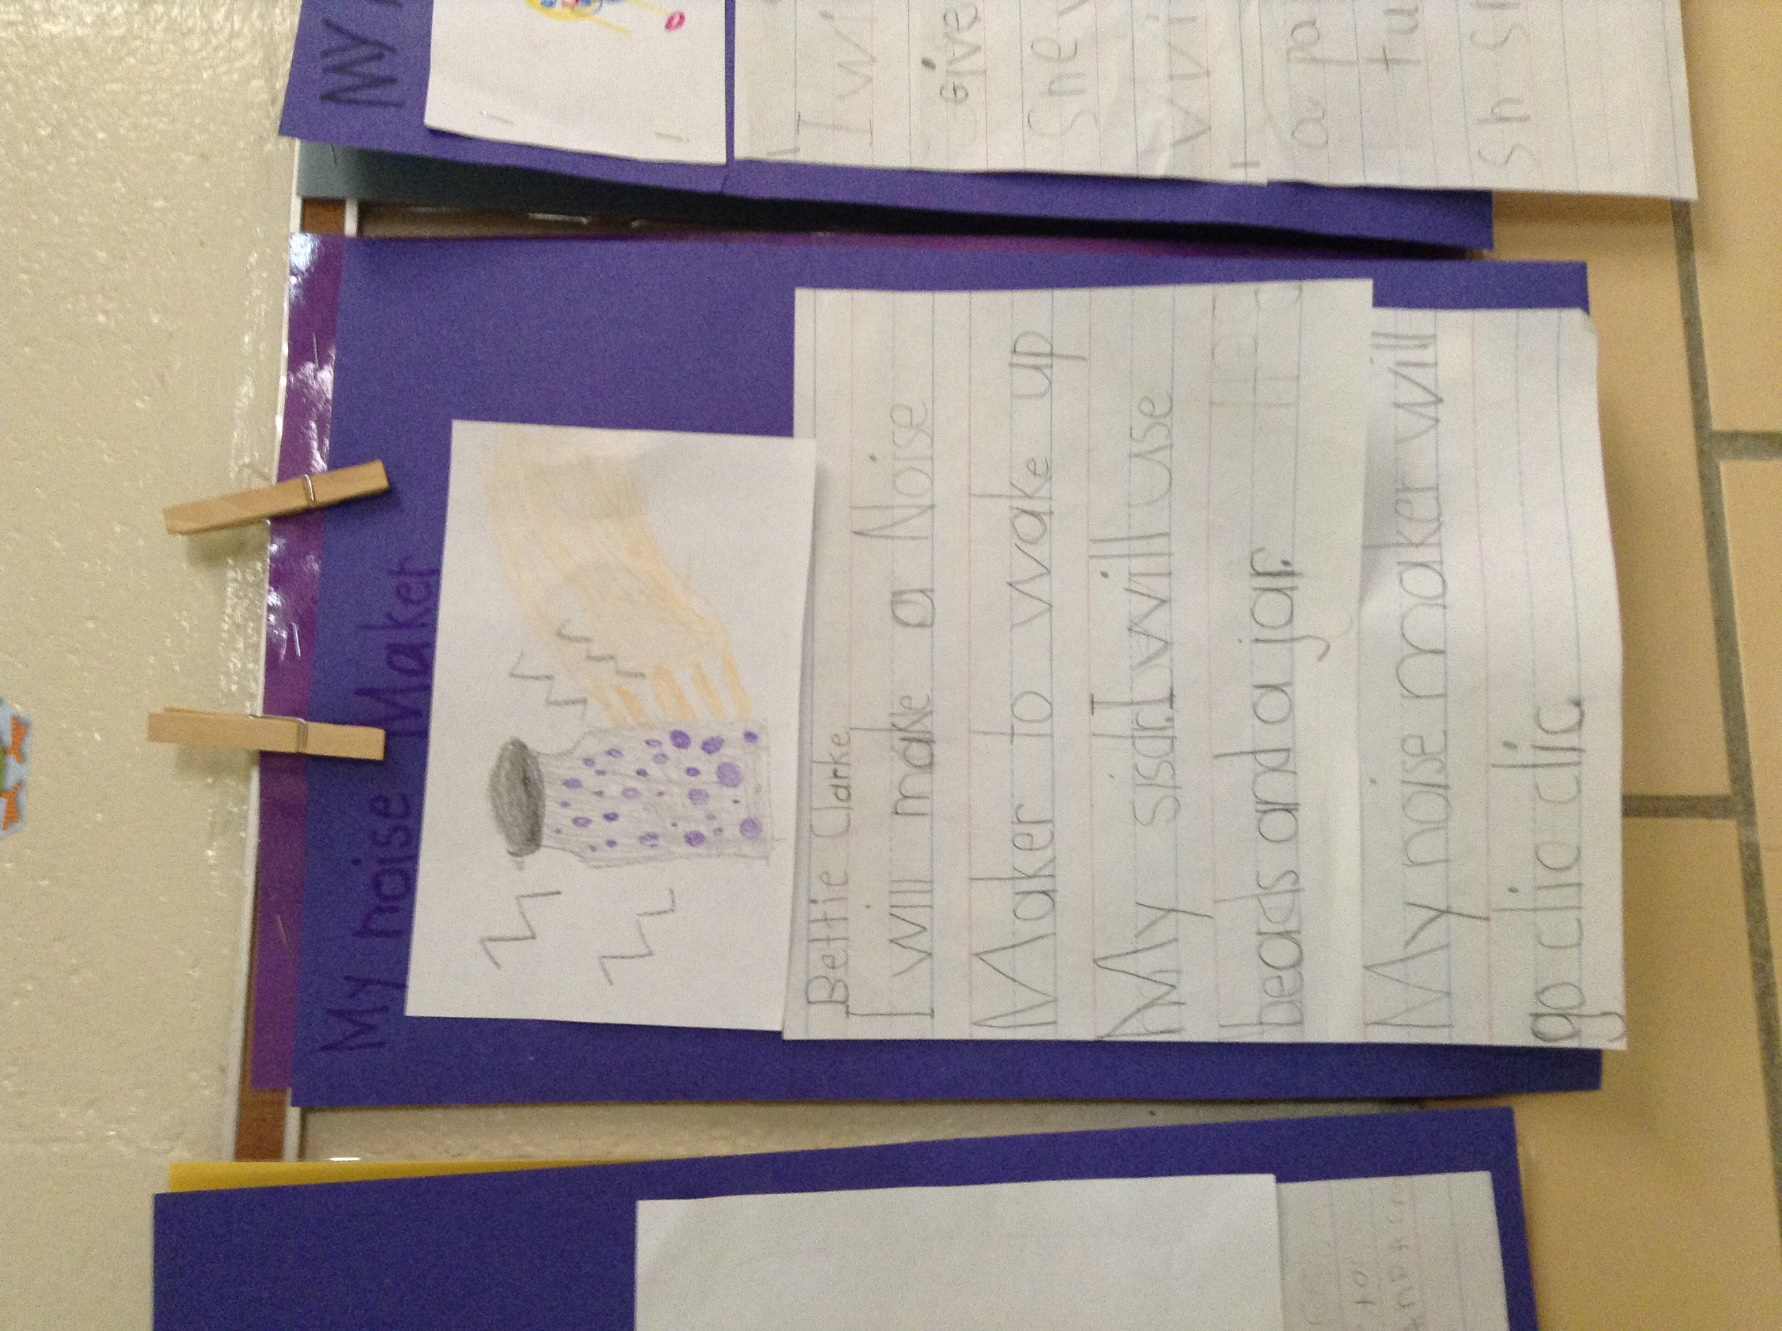 My noise Maker
Bettie Clarke
I will make a Noise
Maker to wake up
My sisdr. I will use
beads and a jar.
My noise maker will
go clic clic.
My
I wi
Give
She
a pa
tu
sh sh